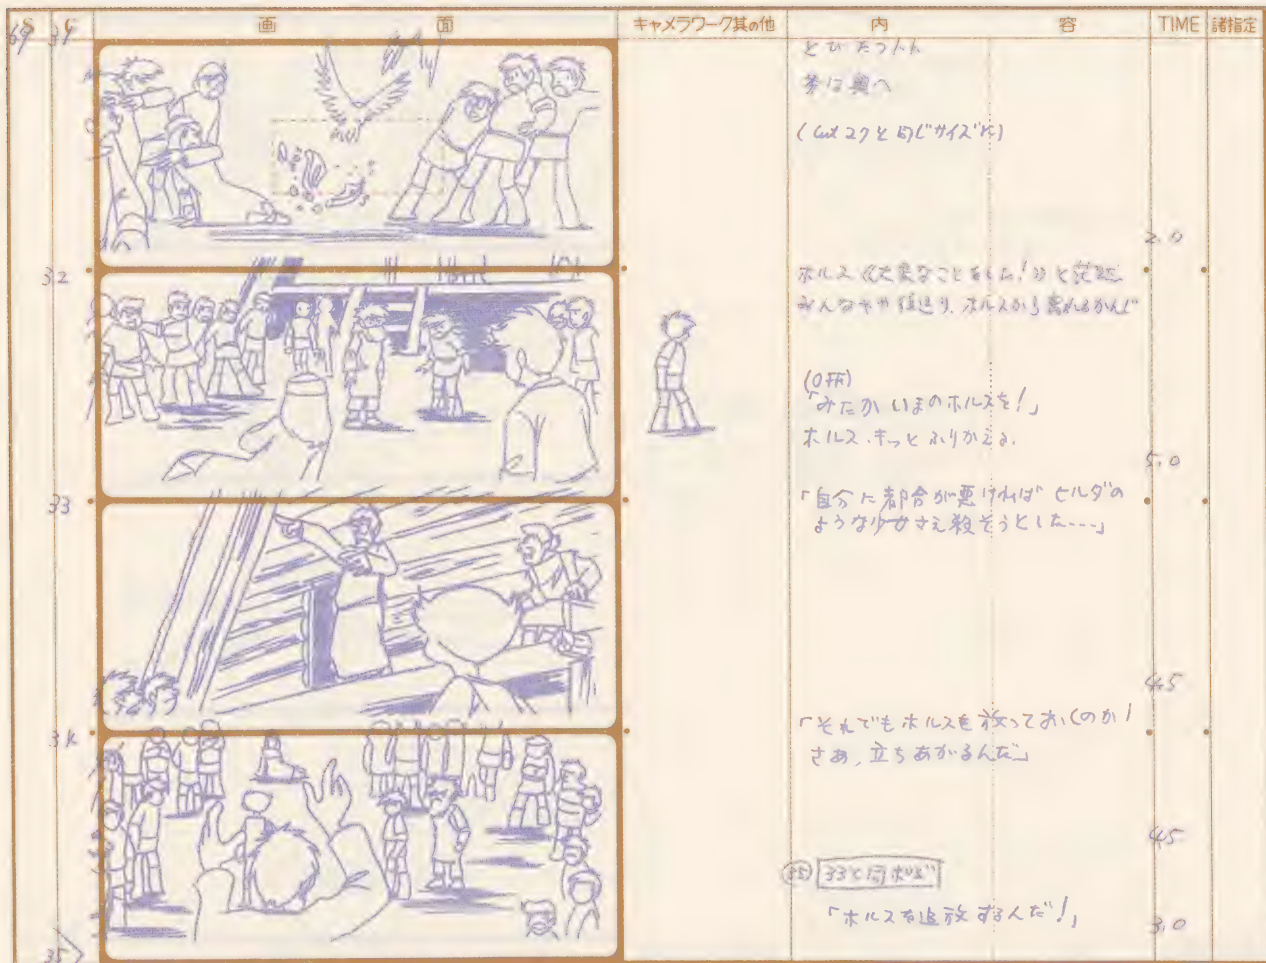 S C 画 面 キャメラワーク其の他 内 容 TIME 諸指定
とびたつトト
斧は奥へ
(Cut 27と同じサイズ)
2.0
32
ホルス《大変なことをした!》と茫然
みんなやや後退り、ホルスから離れるかんじ
(OFF)
「みたか いまのホルスを!」
ホルス、キッとふりかえる。
5.0
33
「自分に都合が悪ければ ヒルダの
ような少女さえ殺そうとした---」
4.5
34
「それでもホルスを放っておくのか!
さあ、立ちあがるんだ」
4.5
35 33と同ポジ
「ホルスを追放するんだ!」
3.0
35